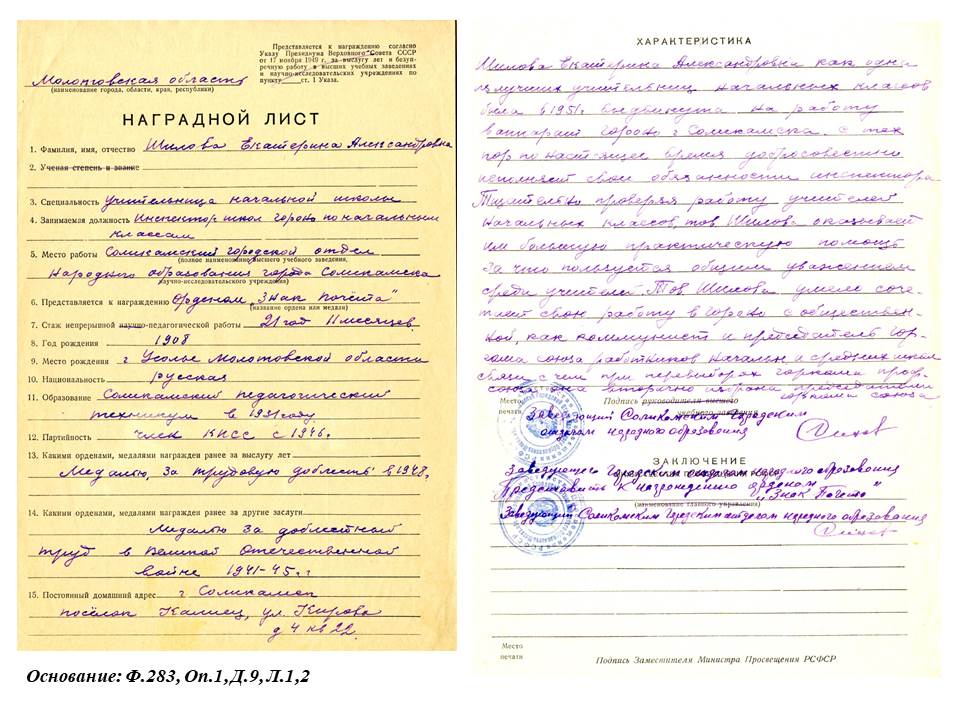 Представляется к награждению согласно
Указу Президиума Верховного Совета СССР
от 17 ноября 1949 г. за выслугу лет и безуп-
речную работу в высших учебных заведениях
и научно-исследовательских учреждениях по
пункту ст. 1 Указа.
Молотовская область
(наименование города, области, края, республики)
НАГРАДНОЙ ЛИСТ
1. Фамилия, имя, отчество Шилова Екатерина Александровна
2. Ученая степень и звание
3. Специальность учительница начальной школы
4. Занимаемая должность Инспектор школ гороно по начальным
классам
5. Место работы Соликамский городской отдел
(полное наименование высшего учебного заведения,
Народного образования города Соликамска
научно-исследовательского учреждения)
6. Представляется к награждению Орденом „Знак Почёта"
(название ордена или медали)
7. Стаж непрерывной научно-педагогической работы 21 год 11 месяцев
8. Год рождения 1908
9. Место рождения г Усолье Молотовской области
10. Национальность русская
11. Образование Соликамский педагогический
техникум в 1931 году
12. Партийность член КПСС с 1946.
13. Какими орденами, медалями награжден ранее за выслугу лет
Медалью „За трудовую доблесть" в 1948.
14. Какими орденами, медалями награжден ранее за другие заслуги
Медалью За доблестный
труд в Великой Отечественной
войне 1941-45. г
15. Постоянный домашний адрес г Соликамск
посёлок Калиец, ул Кирова
д 4 кв 22.
ХАРАКТЕРИСТИКА
Шилова Екатерина Александровна как одна
из лучших учительниц начальных классов
была в 1951г. выдвинута на работу
в аппарат гороно г Соликамска. с тех
пор по настоящее время добросовестно
исполняет свои обязанности инспектора
Тщательно проверяя работу учителей
начальных классов, тов Шилова оказывает
им большую практическую помощь
за что пользуется общим уважением
среди учителей. Тов Шилова умело соче-
тает свою работу в гороно с обществен-
ной, как коммунист и председатель гор-
кома союза работников начальн и средних школ
связи с чем при перевыборах горкома проф-
союза она вторично избрана председателем
горкома союза
Место
печати
Подпись руководителя высшего
учебного заведения
Заведующий Соликамским городским
отделом народного образования
ЗАКЛЮЧЕНИЕ
Заведующего городским отделом народного образования
Представить к награждению орденом
„Знак Почета"
(наименование главного управления)
Заведующий Соликамским городским отделом народного образования
Место
печати
Подпись Заместителя Министра Просвещения РСФСР
Основание: Ф.283, Оп.1, Д.9, Л.1,2